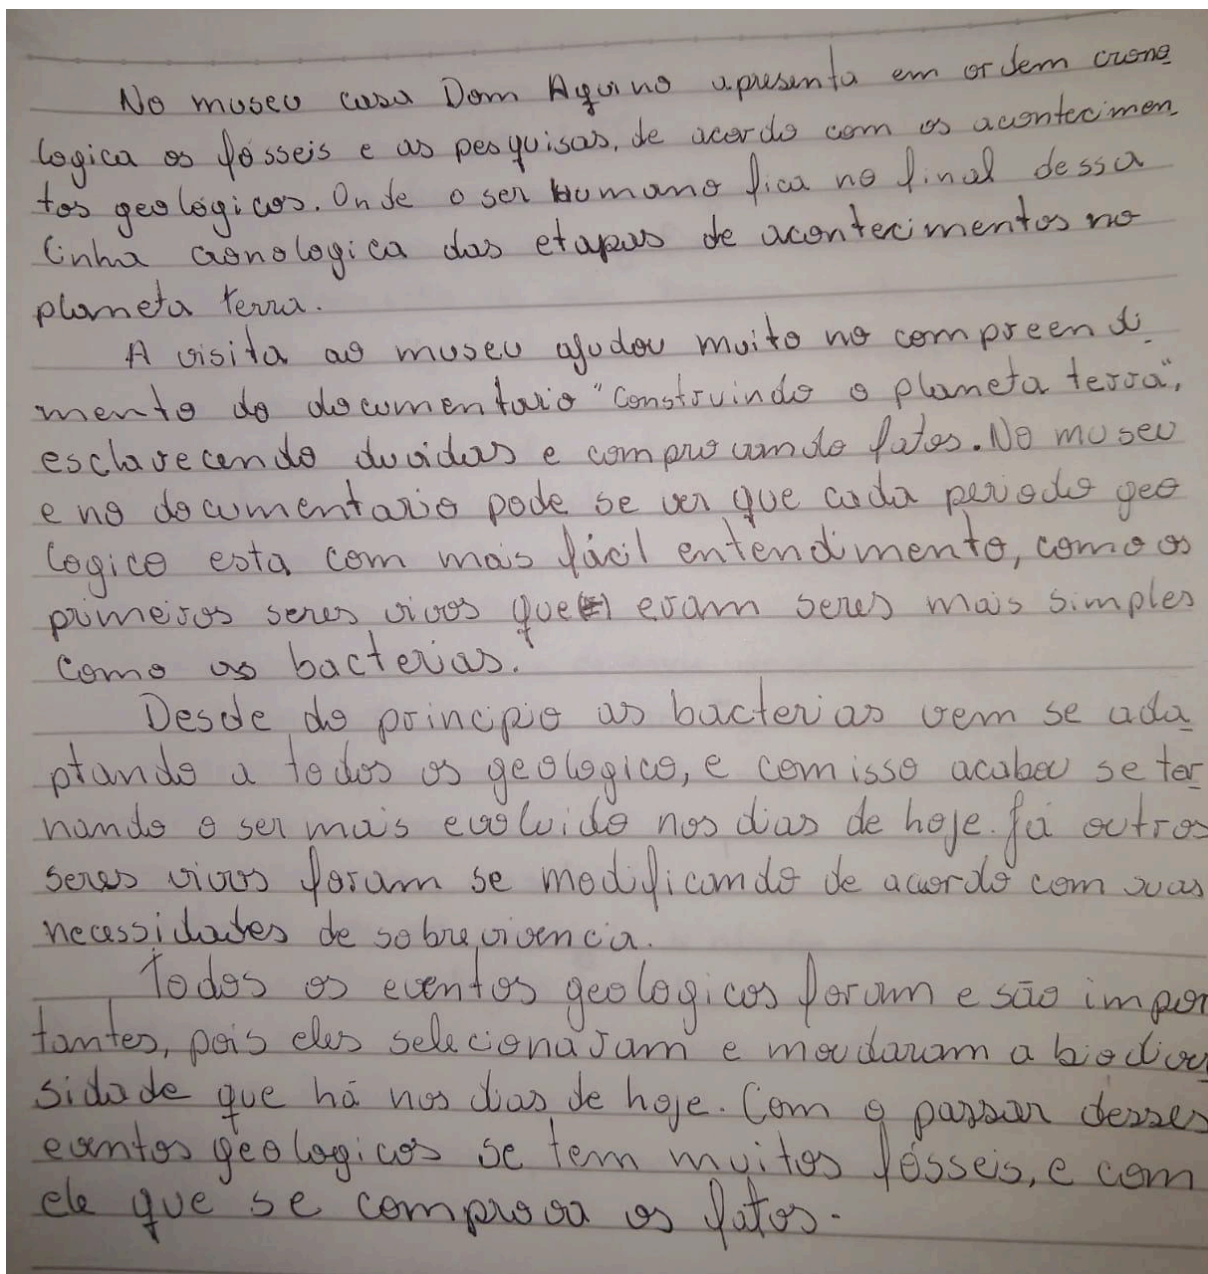 No museu casa Dom Aquino apresenta em ordem crono
logica os fósseis e as pesquisas, de acordo com os acontecimen
tos geológicos. Onde o ser Humano fica no final dessa
linha cronologica das etapas de acontecimentos no
planeta terra.
A visita ao museu ajudou muito no compreendi
mento do documentario "Construindo o planeta terra",
esclarecendo duvidas e comprovando fatos. No museu
e no documentario pode se ver que cada periodo geo
logico esta com mais fácil entendimento, como os
primeiros seres vivos que eram seres mais simples
como as bacterias.
Desde do principio as bacterias vem se ada
ptando a todos os geologico, e com isso acabou se tor
nando o ser mais evoluido nos dias de hoje. Já outros
seres vivos foram se modificando de acordo com suas
necessidades de sobrevivencia.
Todos os eventos geologicos foram e são impor
tantes, pois eles selecionaram e moudaram a biodiver
sidade que há nos dias de hoje. Com o passar desses
eventos geologicos se tem muitos fósseis, e com
ele que se comprova os fatos.